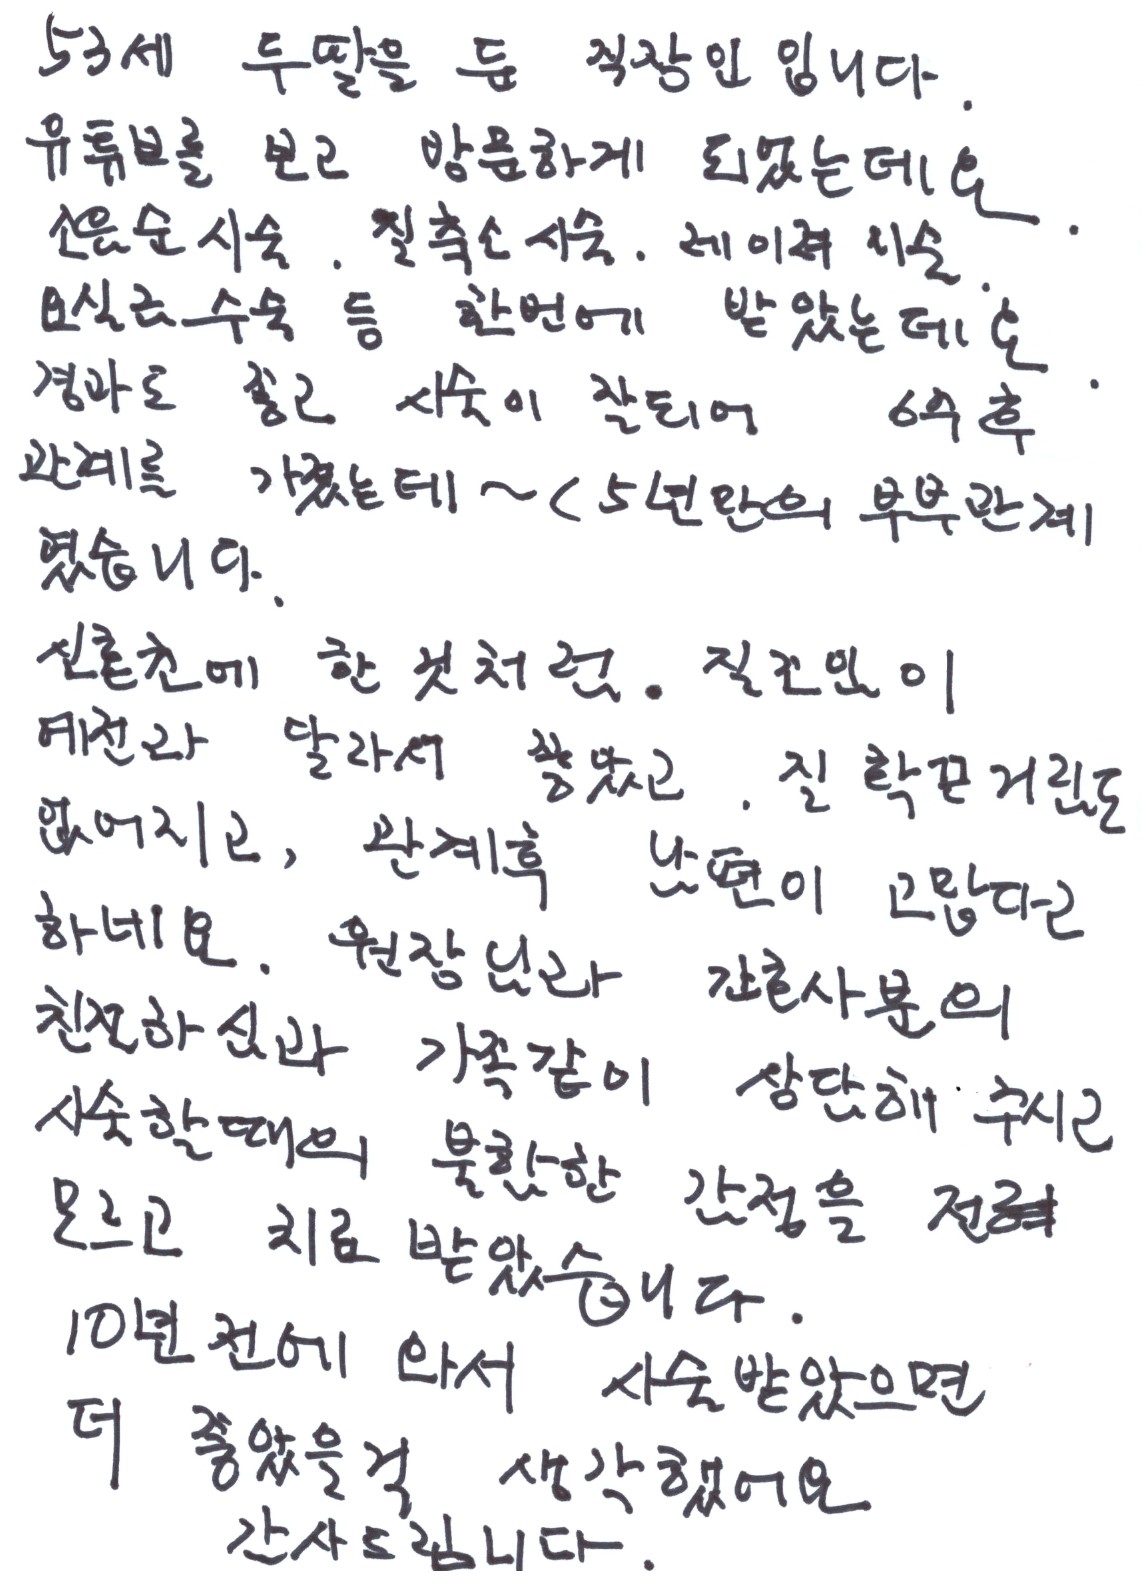 53세 두딸을 둔 직장인 입니다.
유튜브를 보고 방문하게 되었는데요.
소음순시술. 질축소시술. 레이져 시술.
요실금수술 등 한번에 받았는데요.
경과도 좋고 시술이 잘되어 6주후
관계를 가졌는데~(5년만의 부부관계
였습니다.
신혼초에 한 것처럼. 질조임이
예전과 달라서 좋았고. 질 확끈거림도
없어지고, 관계후 남편이 고맙다고
하네요. 원장님과 간호사분의
친절하심과 가족같이 상담해 주시고
시술할때의 불편한 감정을 전혀
모르고 치료 받았습니다.
10년전에 와서 시술받았으면
더 좋았을걸 생각했어요
감사드립니다.